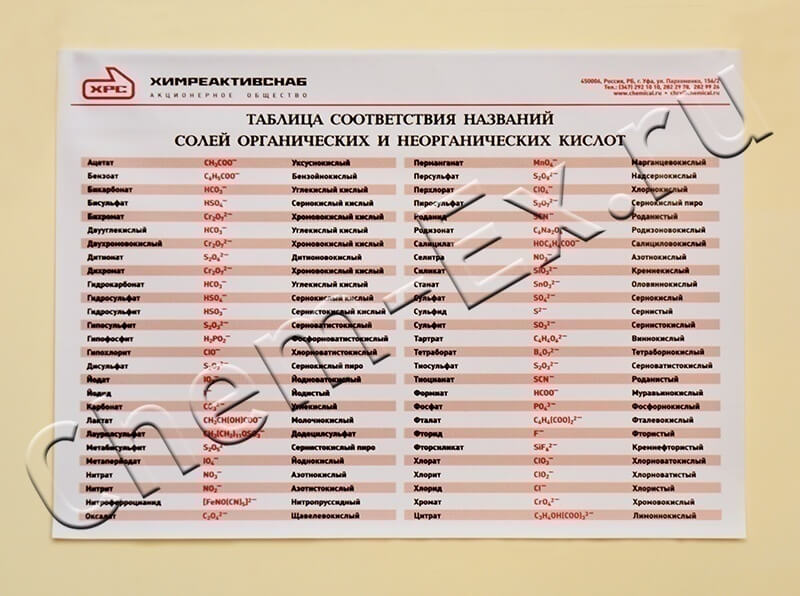 ХРС
ХИМРЕАКТИВСНАБ
АКЦИОНЕРНОЕ ОБЩЕСТВО
450006, Россия, РБ, г. Уфа, ул. Пархоменко, 156/2
Тел.: (347) 292 10 10, 282 29 78, 282 99 26
www.chemical.ru •
ТАБЛИЦА СООТВЕТСТВИЯ НАЗВАНИЙ
СОЛЕЙ ОРГАНИЧЕСКИХ И НЕОРГАНИЧЕСКИХ КИСЛОТ
Ацетат CH₃COO⁻ Уксуснокислый Перманганат MnO₄⁻ Марганцевокислый
Бензоат C₆H₅COO⁻ Бензойнокислый Персульфат S₂O₈²⁻ Надсернокислый
Бикарбонат HCO₃⁻ Углекислый кислый Перхлорат ClO₄⁻ Хлорнокислый
Бисульфат HSO₄⁻ Сернокислый кислый Пиросульфат S₂O₇²⁻ Сернокислый пиро
Бихромат Cr₂O₇²⁻ Хромовокислый кислый Роданид SCN⁻ Роданистый
Двууглекислый HCO₃⁻ Углекислый кислый Родизонат Родизоновокислый
Двухромовокислый Cr₂O₇²⁻ Хромовокислый кислый Салицилат Салициловокислый
Дитионат S₂O₄²⁻ Дитионовокислый Селитра NO₃⁻ Азотнокислый
Дихромат Cr₂O₇²⁻ Хромовокислый кислый Силикат SiO₃²⁻ Кремнекислый
Гидрокарбонат HCO₃⁻ Углекислый кислый Станат SnO₃²⁻ Оловяннокислый
Гидросульфат HSO₄⁻ Сернокислый кислый Сульфат SO₄²⁻ Сернокислый
Гидросульфит HSO₃⁻ Сернистокислый кислый Сульфид S²⁻ Сернистый
Гипосульфит S₂O₃²⁻ Серноватистокислый Сульфит SO₃²⁻ Сернистокислый
Гипофосфит H₂PO₂⁻ Фосфорноватистокислый Тартрат C₄H₄O₆²⁻ Виннокислый
Гипохлорит ClO⁻ Хлорноватистокислый Тетраборат B₄O₇²⁻ Тетраборнокислый
Дисульфат Сернокислый пиро Тиосульфат S₂O₃²⁻ Серноватистокислый
Йодат Йодноватокислый Тиоцианат SCN⁻ Роданистый
Йодид Йодистый Формиат HCOO⁻ Муравьинокислый
Карбонат CO₃²⁻ Углекислый Фосфат PO₄³⁻ Фосфорнокислый
Лактат CH₃CH(OH)COO⁻ Молочнокислый Фталат C₆H₄(COO)₂²⁻ Фталевокислый
Лаурилсульфат Додецилсульфат Фторид F⁻ Фтористый
Метабисульфит S₂O₅²⁻ Сернистокислый пиро Фторсиликат SiF₆²⁻ Кремнефтористый
Метапериодат IO₄⁻ Йоднокислый Хлорат ClO₃⁻ Хлорноватокислый
Нитрат NO₃⁻ Азотнокислый Хлорит ClO₂⁻ Хлорноватистокислый
Нитрит NO₂⁻ Азотистокислый Хлорид Cl⁻ Хлористый
Нитроферроцианид [FeNO(CN)₅]²⁻ Нитропруссидный Хромат CrO₄²⁻ Хромовокислый
Оксалат C₂O₄²⁻ Щавелевокислый Цитрат C₃H₄OH(COO)₃³⁻ Лимоннокислый
Chem-Ex.ru